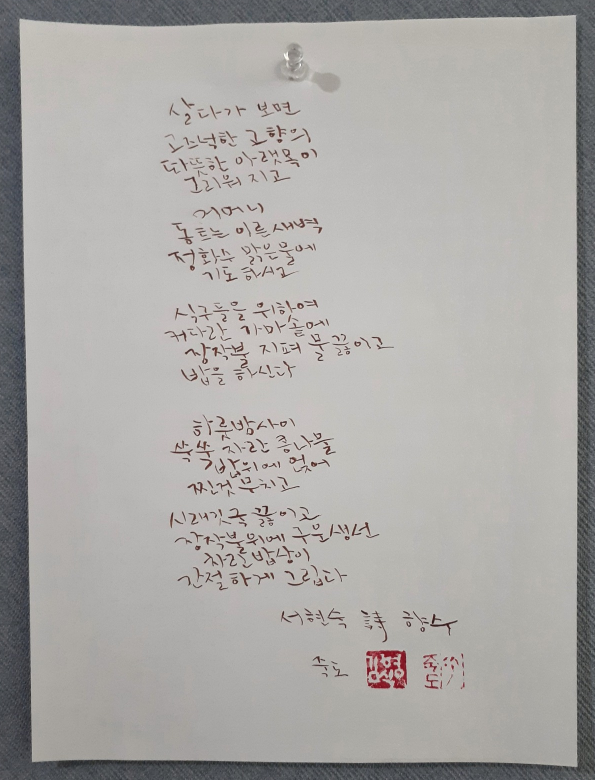 살다가 보면
고즈넉한 고향의
따뜻한 아랫목이
그리워 지고
어머니
동트는 이른새벽
정화수 맑은물에
기도하시고
식구들을 위하여
커다란 가마솥에
장작불 지펴 물끓이고
밥을 하신다
하룻밤사이
쑥쑥 자란 콩나물
밥위에 얹어
찐것 무치고
시래깃국 끓이고
장작불위에 구운생선
차린밥상이
간절하게 그립다
서현숙 詩 향수
죽도
죽도